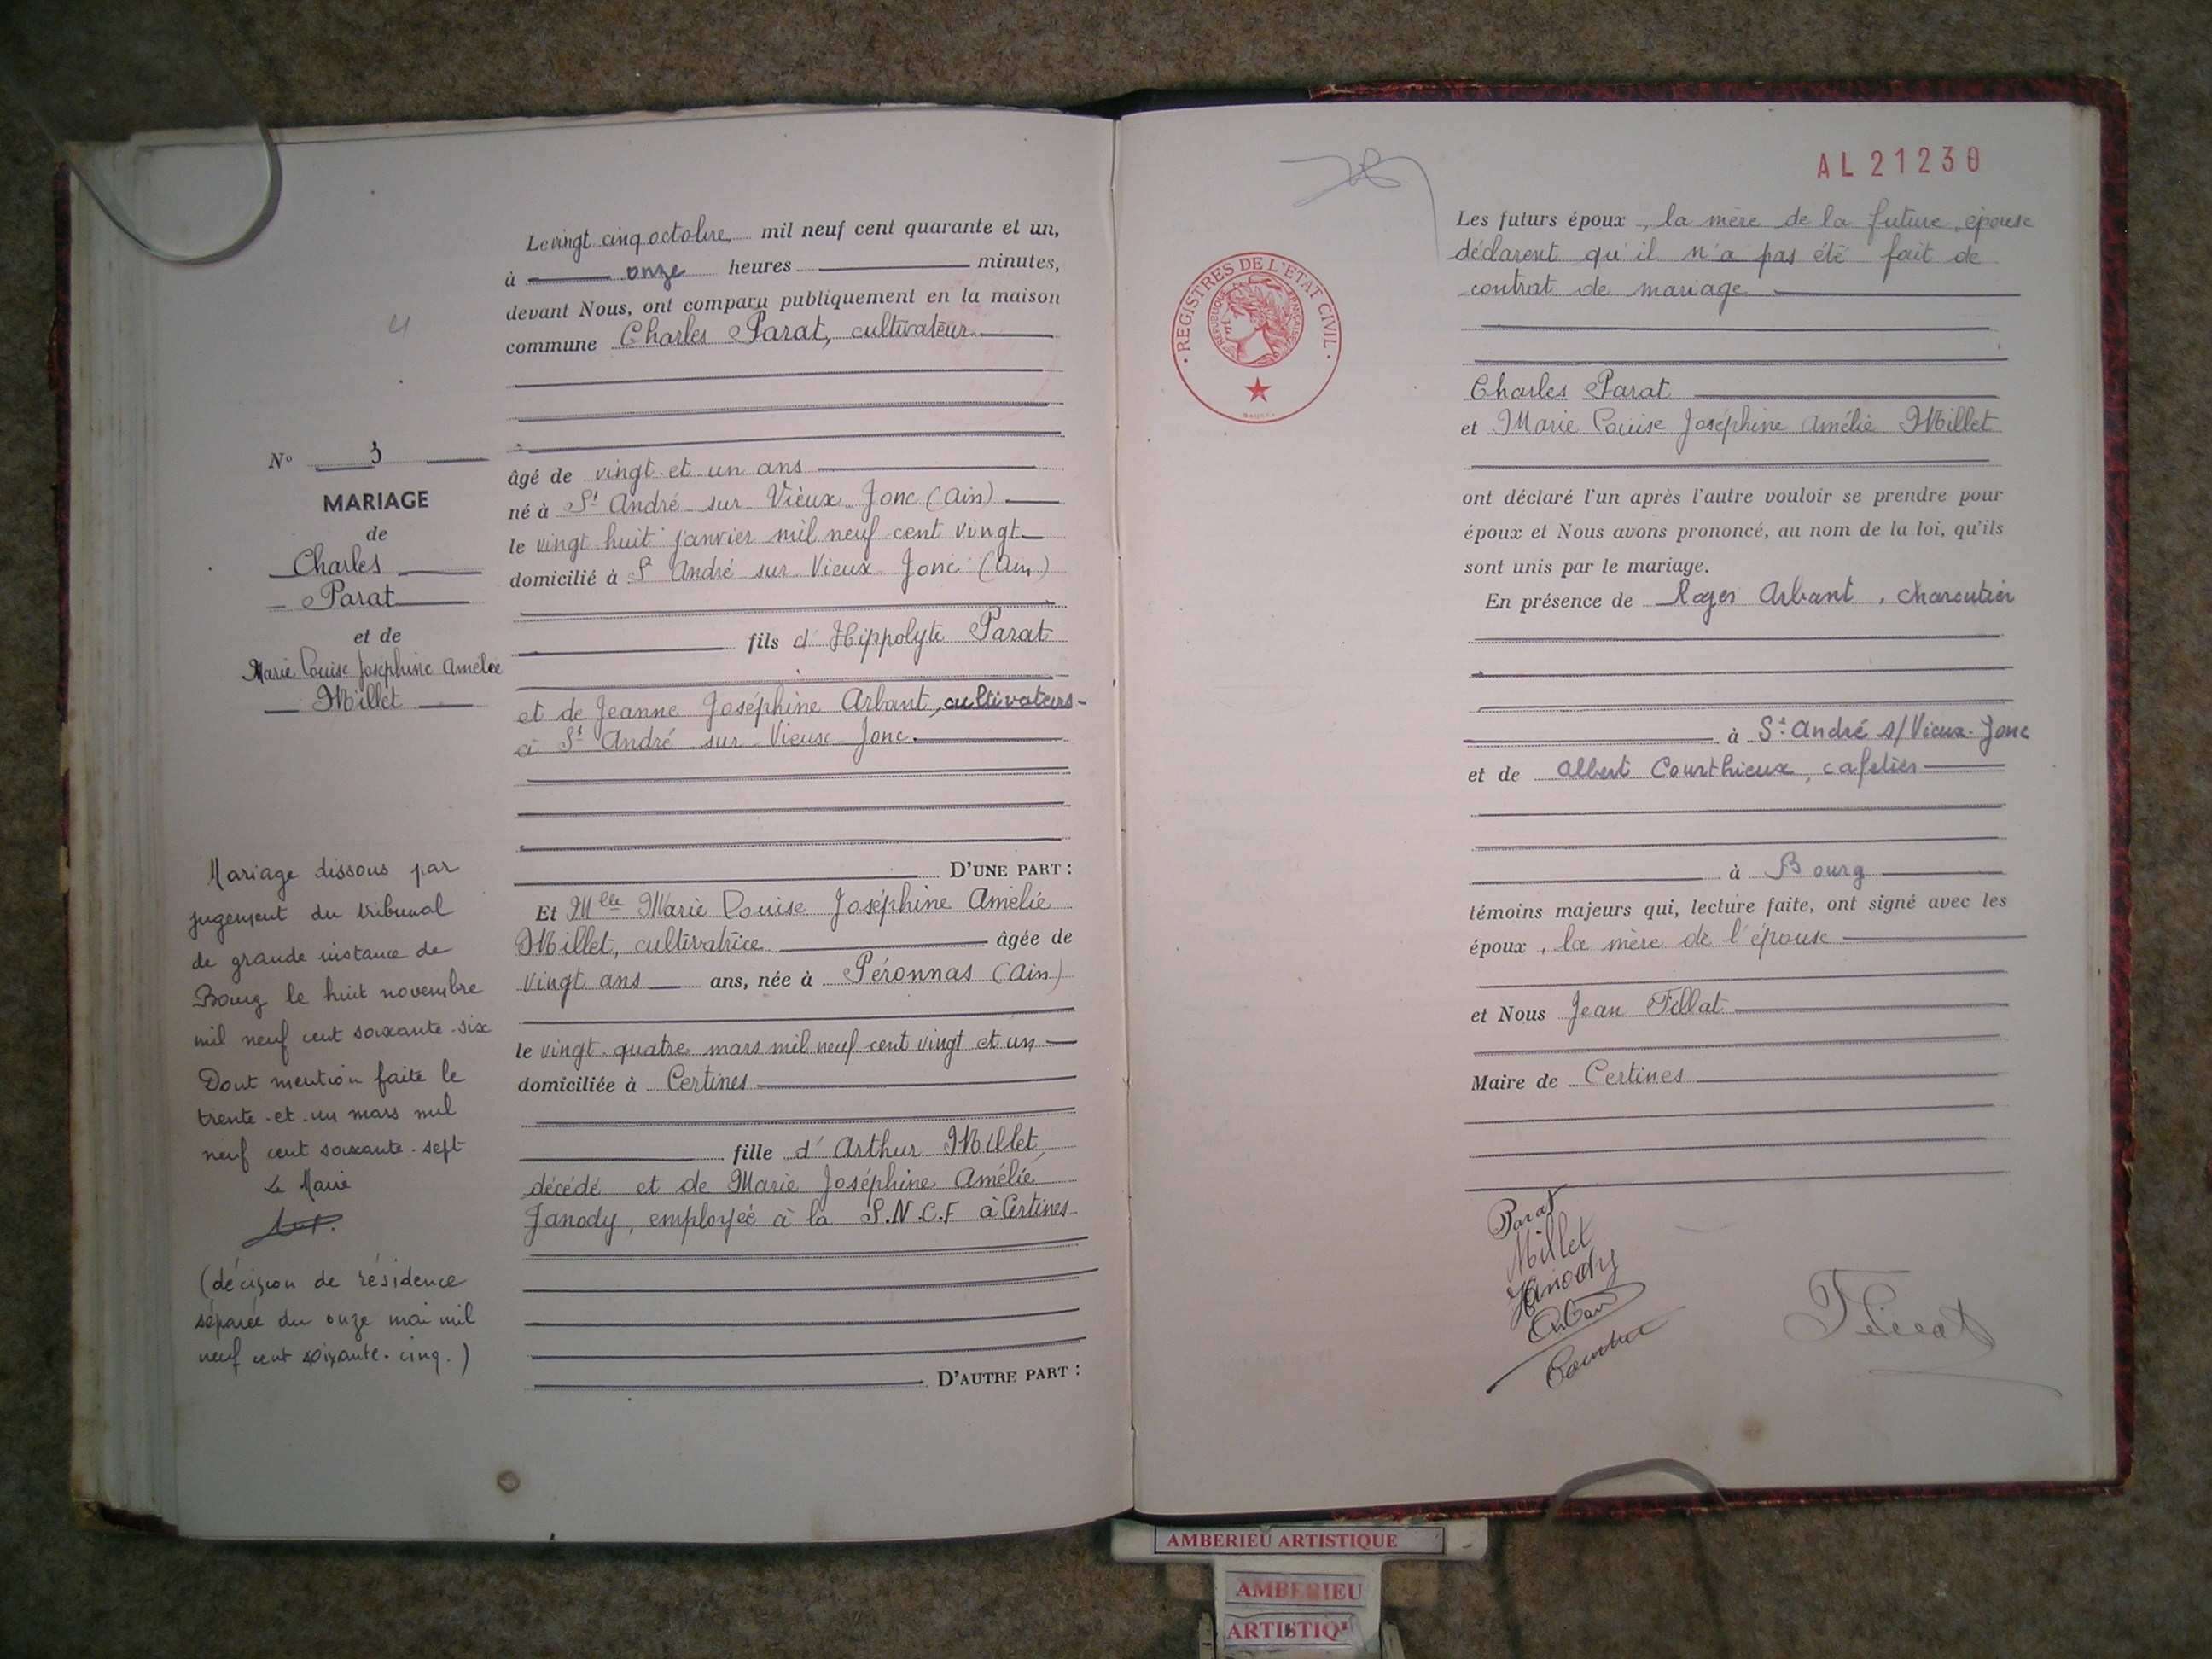 4
N° 3
MARIAGE
de
Charles
Parat
et de
Marie Louise Joséphine Amélie
Millet
Mariage dissous par
jugement du tribunal
de grande instance de
Bourg le huit novembre
mil neuf cent soixante-six
Dont mention faite le
trente-et-un mars mil
neuf cent soixante-sept
Le Maire
(décision de résidence
séparée du onze mai mil
neuf cent soixante-cinq.)
Le vingt cinq octobre, mil neuf cent quarante et un,
à onze heures minutes,
devant Nous, ont comparu publiquement en la maison
commune Charles Parat, cultivateur
âgé de vingt et un ans
né à St André sur Vieux Jonc (Ain)
le vingt huit janvier mil neuf cent vingt
domicilié à St André sur Vieux Jonc (Ain)
fils d'Hippolyte Parat
et de Jeanne Joséphine Arbant, cultivateurs
à St André sur Vieux Jonc.
D'UNE PART :
Et Mlle Marie Louise Joséphine Amélie
Millet, cultivatrice âgée de
vingt ans ans, née à Péronnas (Ain)
le vingt quatre mars mil neuf cent vingt et un
domiciliée à Certines
fille d'Arthur Millet,
décédé et de Marie Joséphine Amélie
Janody, employée à la S.N.C.F à Certines
D'AUTRE PART :
AL 21230
REGISTRES DE L'ETAT CIVIL
REPUBLIQUE FRANÇAISE
Les futurs époux, la mère de la future épouse
déclarent qu'il n'a pas été fait de
contrat de mariage
Charles Parat
et Marie Louise Joséphine Amélie Millet
ont déclaré l'un après l'autre vouloir se prendre pour
époux et Nous avons prononcé, au nom de la loi, qu'ils
sont unis par le mariage.
En présence de Roger Arbant, charcutier
à St André s/Vieux-Jonc
et de Albert Courthieux, cafetier
à Bourg
témoins majeurs qui, lecture faite, ont signé avec les
époux, la mère de l'épouse
et Nous Jean Fillat
Maire de Certines
Parat
Millet
Janody
AMBERIEU ARTISTIQUE
AMBERIEU
ARTISTIQ